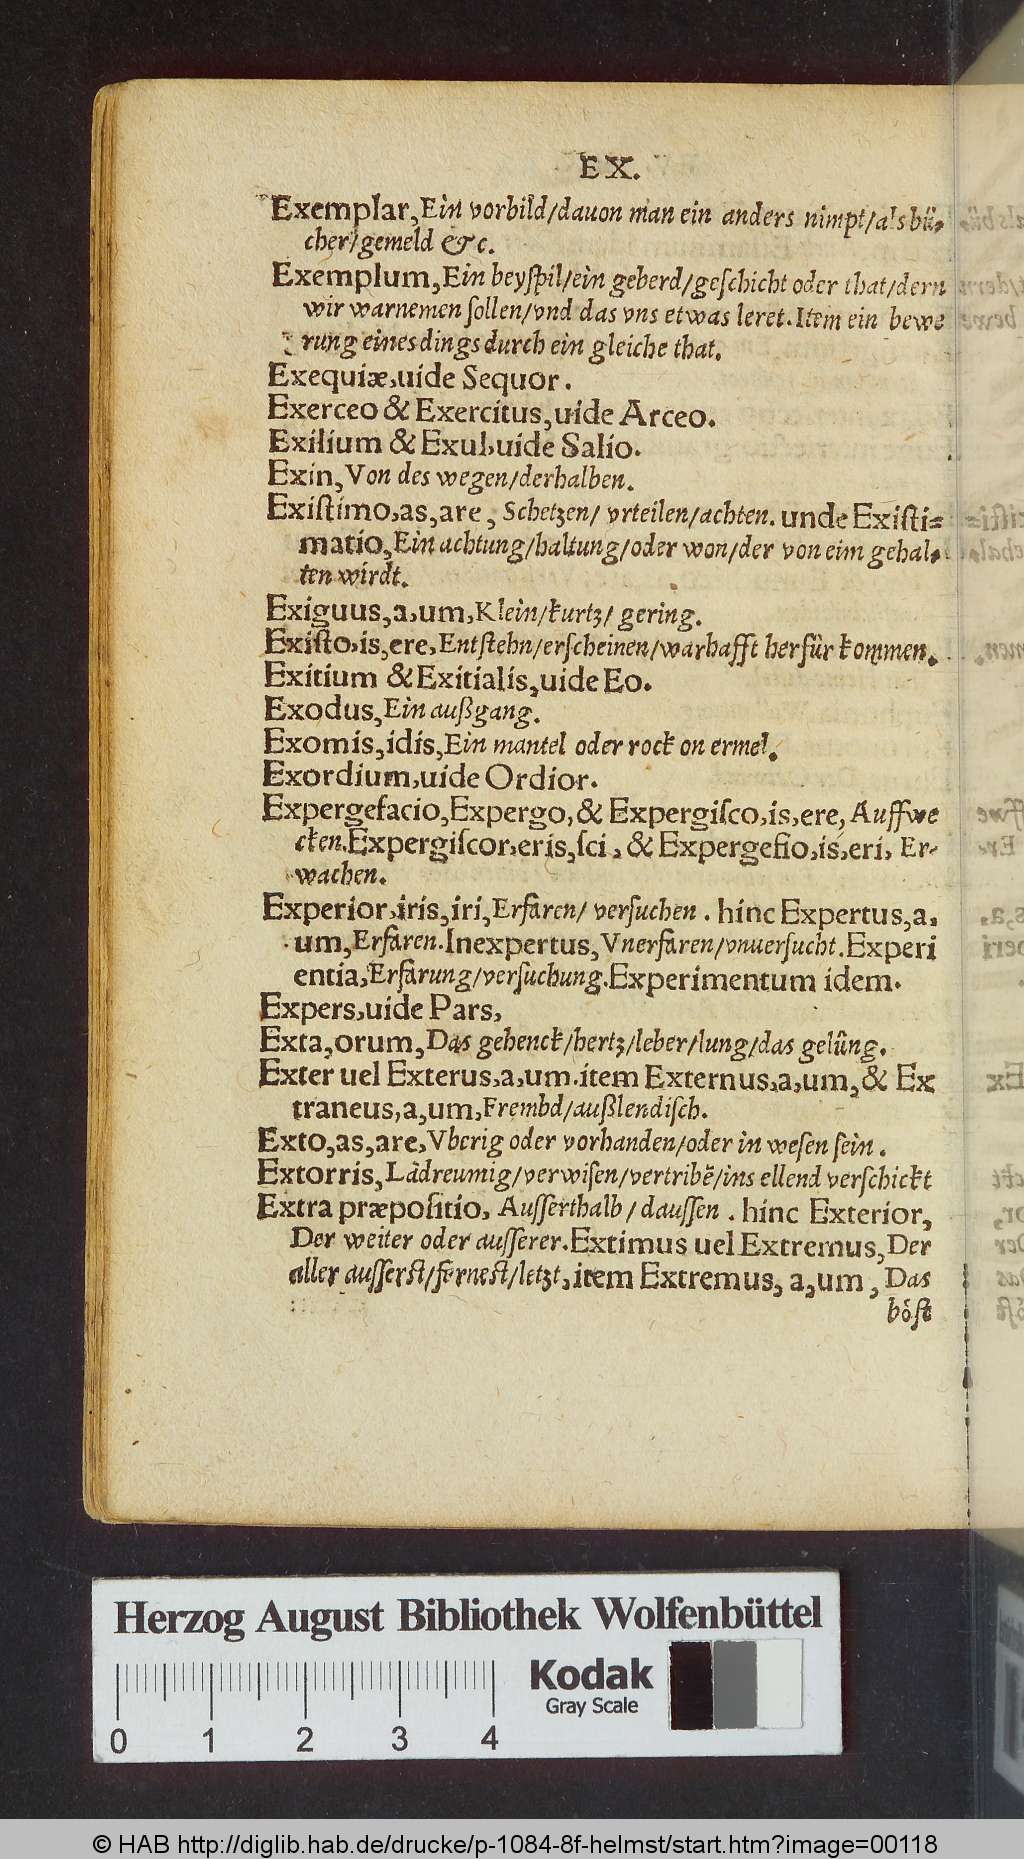 EX.
Exemplar, Ein vorbild/dauon man ein anders nimpt/als bü-
cher/gemeld &c.
Exemplum, Ein beyſpil/ein geberd/geſchicht oder that/dern
wir warnemen ſollen/vnd das vns etwas leret. Item ein bewe
rung eines dings durch ein gleiche that.
Exequiæ, uide Sequor.
Exerceo & Exercitus, uide Arceo.
Exilium & Exul, uide Salio.
Exin, Von des wegen/derhalben.
Exiſtimo, as, are, Schetzen/ vrteilen/achten. unde Exiſti=
matio, Ein achtung/haltung/oder won/der von eim gehal-
ten wirdt.
Exiguus, a, um, Klein/kurtz/ gering.
Exiſto, is, ere, Entſtehn/erſcheinen/warhafft herfür kommen.
Exitium & Exitialis, uide Eo.
Exodus, Ein außgang.
Exomis, idis, Ein mantel oder rock on ermel.
Exordium, uide Ordior.
Expergefacio, Expergo, & Expergiſco, is, ere, Auffwe
cken. Expergiſcor, eris, ſci, & Expergefio, is, eri, Er-
wachen.
Experior, iris, iri, Erfaren/ verſuchen. hinc Expertus, a,
um, Erfaren. Inexpertus, Vnerfaren/vnuerſucht. Experi
entia, Erfarung/verſuchung. Experimentum idem.
Expers, uide Pars,
Exta, orum, Das gehenck/hertz/leber/lung/das gelüng.
Exter uel Exterus, a, um. item Externus, a, um, & Ex
traneus, a, um, Frembd/außlendiſch.
Exto, as, are, Vberig oder vorhanden/oder in weſen ſein.
Extorris, Lãdreumig/verwiſen/vertribẽ/ins ellend verſchickt
Extra præpoſitio, Auſſerthalb/dauſſen. hinc Exterior,
Der weiter oder auſſerer. Extimus uel Extremus, Der
aller auſſerſt/fernest/letzt, item Extremus, a, um, Das
böſt
Herzog August Bibliothek Wolfenbüttel
Kodak
Gray Scale
0 1 2 3 4
© HAB http://diglib.hab.de/drucke/p-1084-8f-helmst/start.htm?image=00118